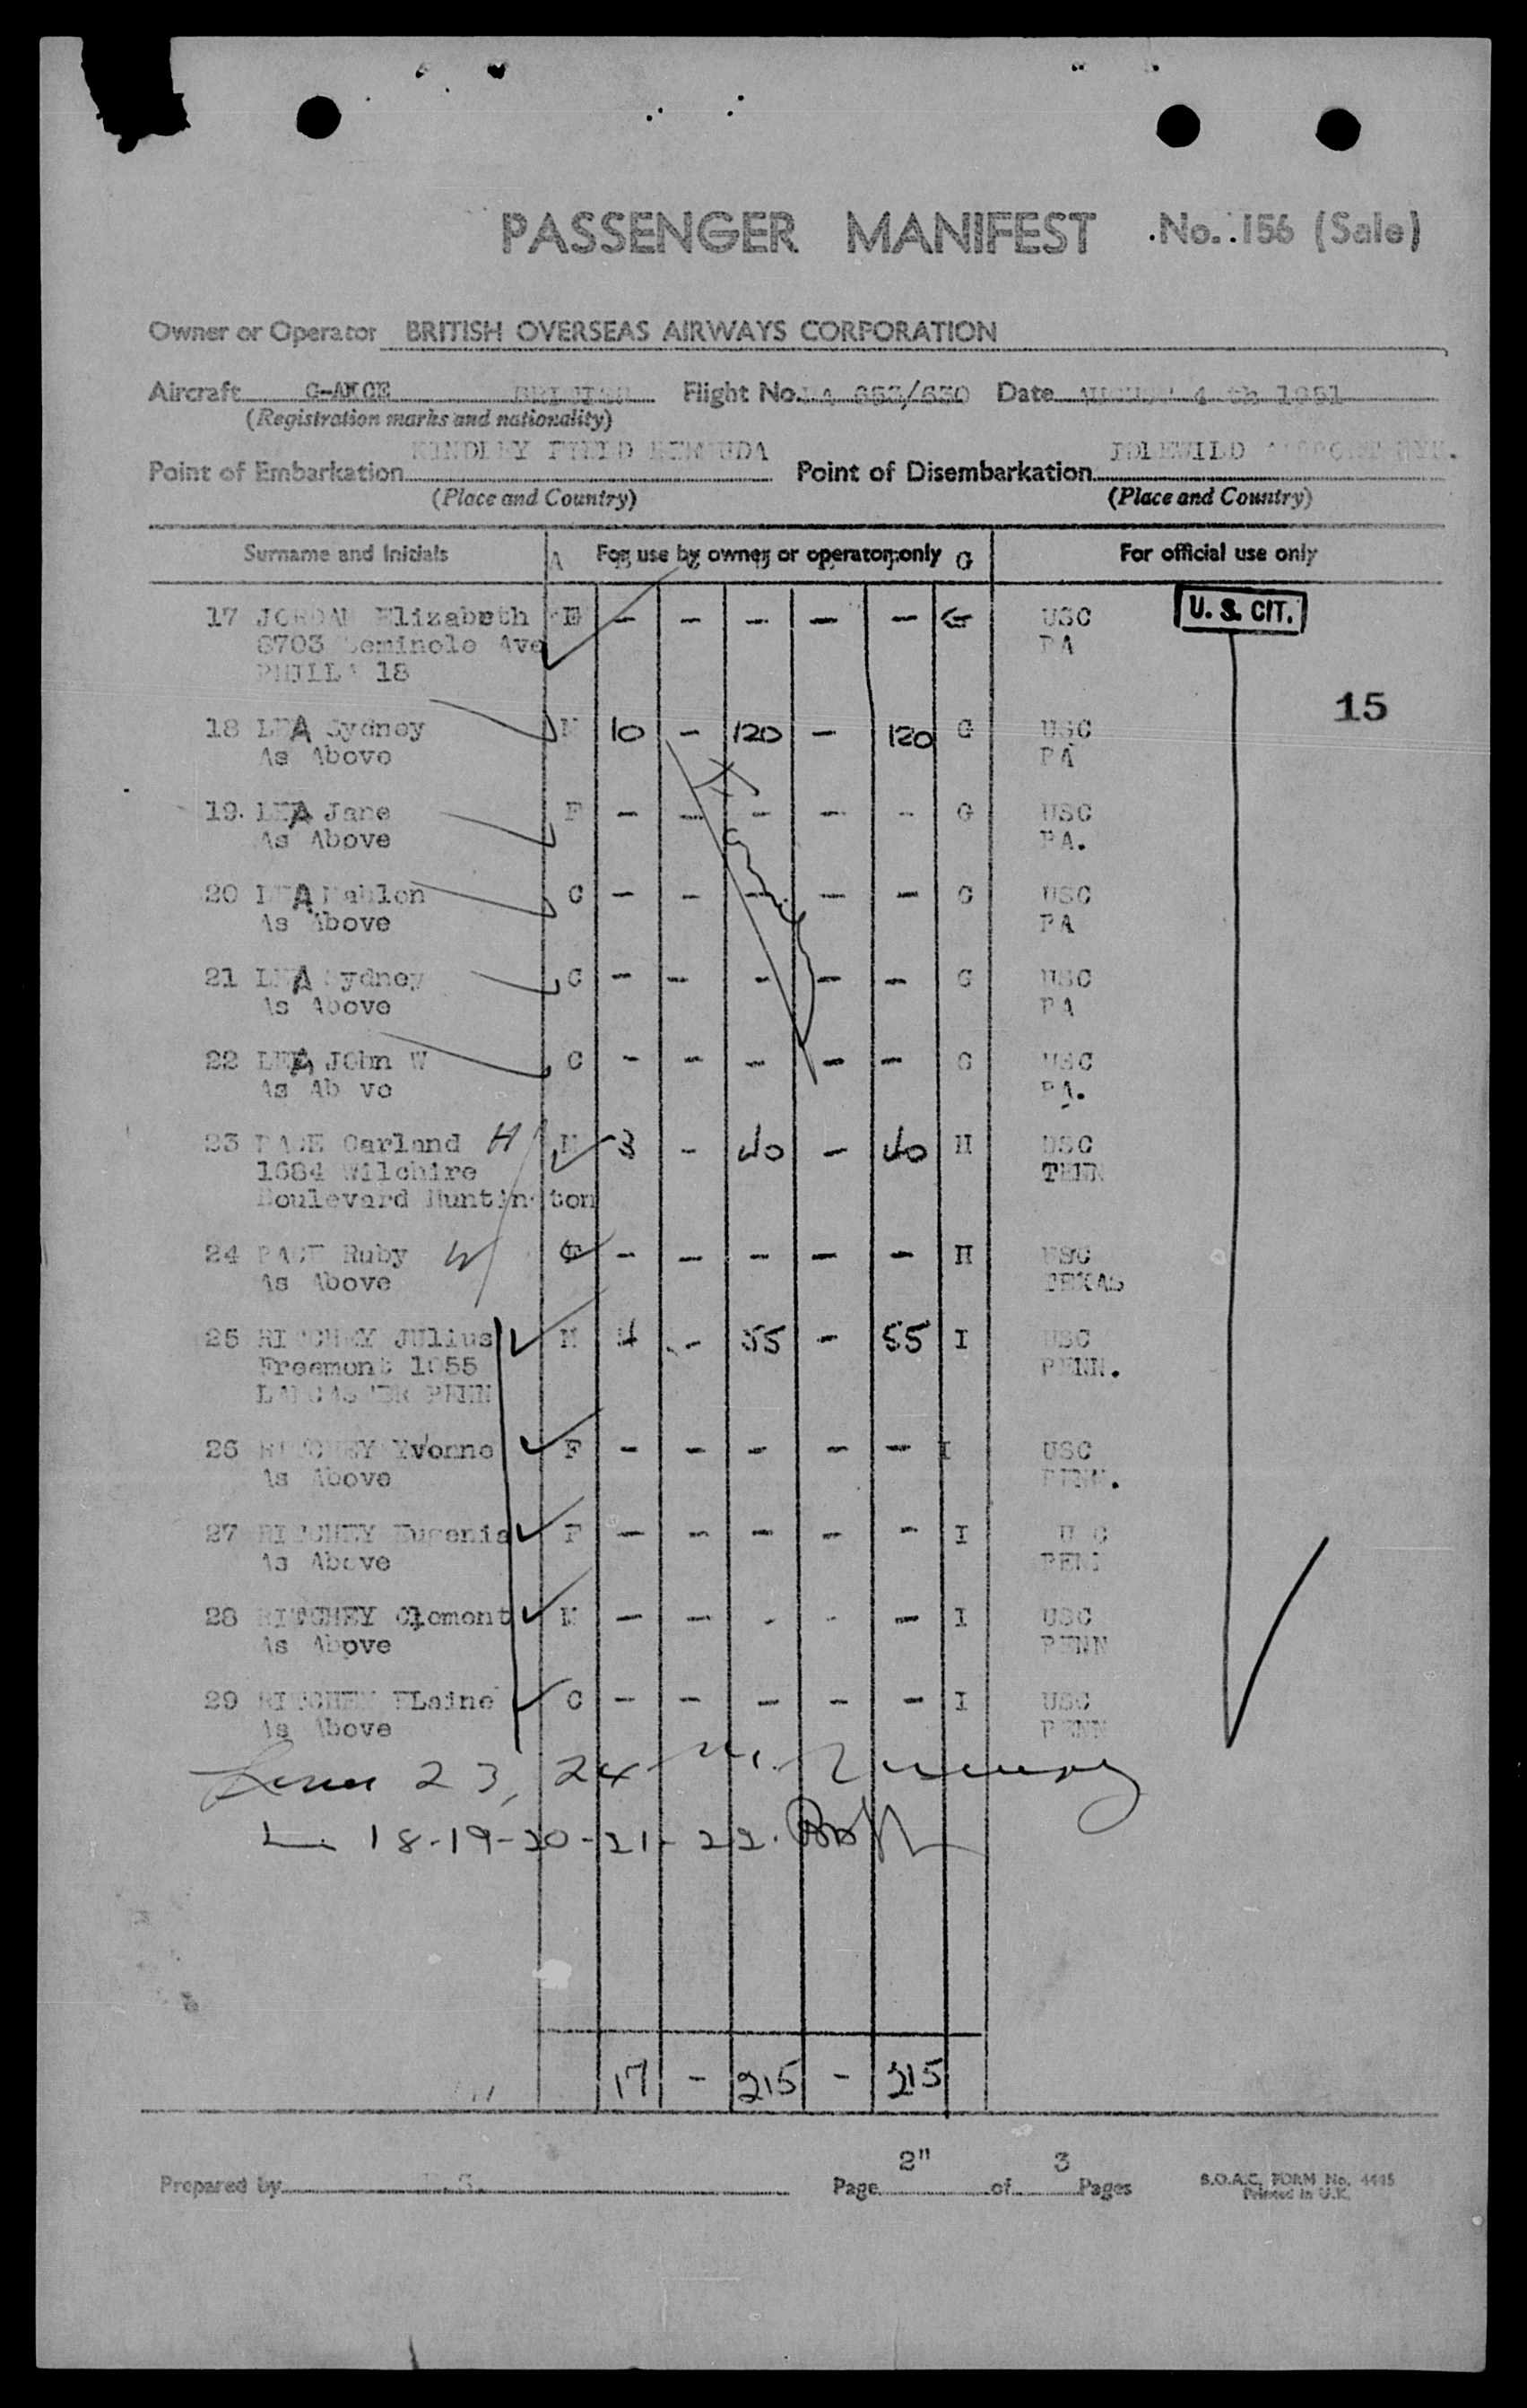 PASSENGER MANIFEST .No..156 (Sale)
Owner or Operator BRITISH OVERSEAS AIRWAYS CORPORATION
Aircraft G-AKGE BRITISH Flight No. 653/650 Date AUGUST 4 th 1951
(Registration marks and nationality)
KINDLEY FIELD BERMUDA IDLEWILD AIRPORT NYK.
Point of Embarkation Point of Disembarkation
(Place and Country) (Place and Country)
Surname and Initials A For use by owner or operator only G For official use only
17 JORDAN Elizabeth F - - - - - G USC U.S. CIT.
8703 Seminole Ave PA
PHILLA 18
15
18 LEA Sydney M 10 - 120 - 120 G USC
As Above PA
19. LEA Jane F - - - - - G USC
As Above PA.
20 LEA Mahlon C - - - - - G USC
As Above PA
21 LEA Sydney C - - - - - G USC
As Above PA
22 LEA JOhn W C - - - - - G USC
As Ab ve PA.
23 PACE Garland H M 3 - 40 - 40 H USC
1684 Wilchire TENN
Boulevard Huntington
24 PACE Ruby W F - - - - - H USC
As Above TEXAS
25 RITCHEY JUlius M 4 - 55 - 55 I USC
Freemont 1055 PENN.
LANCASTER PENN
26 RITCHEY Yvonne F - - - - - I USC
As Above PENN.
27 RITCHEY Eugenia F - - - - - I U C
As Above PENN
28 RITCHEY Clemont M - - - - - I USC
As Above PENN
29 RITCHEY ELaine C - - - - - I USC
As Above PENN
23, 24
L 18-19-20-21-22.
17 - 215 - 215
Prepared by
Page 2" of 3 Pages
B.O.A.C. FORM No. 4445
Printed in U.K.